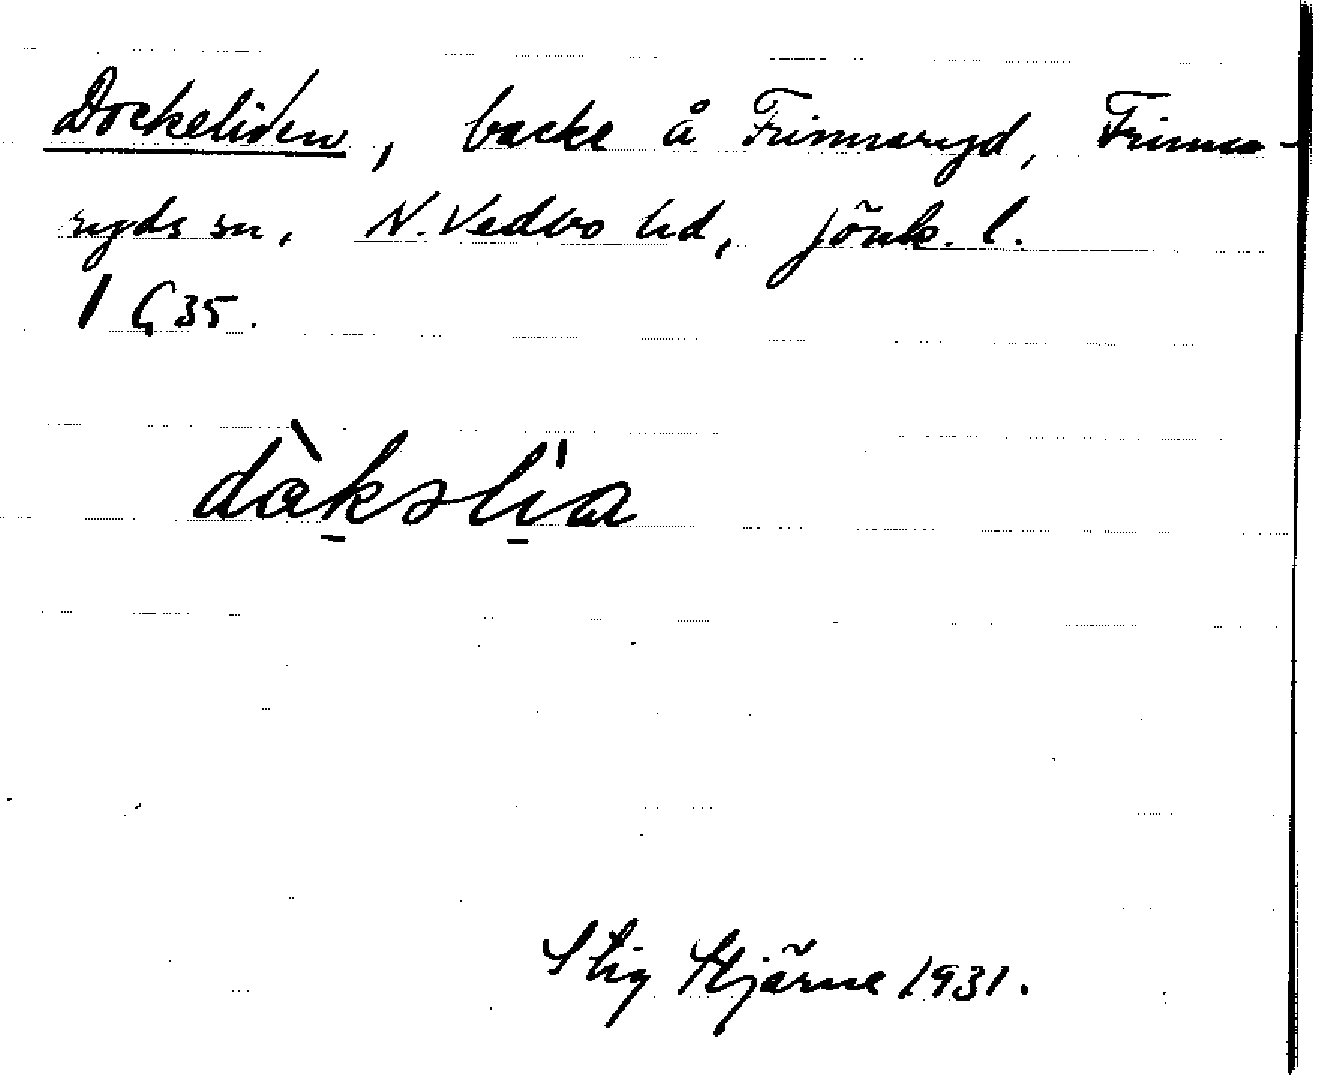 Dockeliden, backe å Frinnaryd, Frinna-
ryds sn, N. Vedbo hd, Jönk. l.
1 G 35.
dàkəslia
Stig Hjärne 1931.